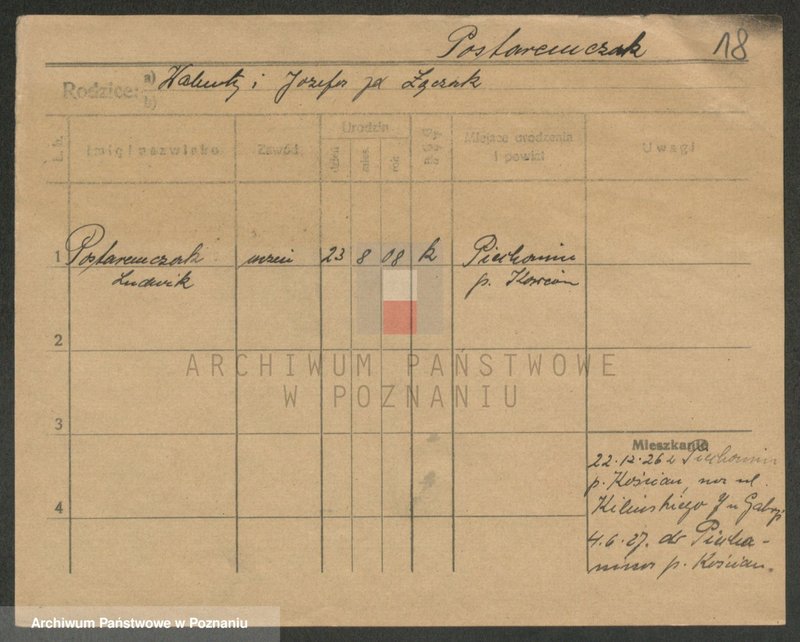 Postaremczak 18
Rodzice: a) Walenty i Józefa zd Łączak
b)
L. b. Imię i nazwisko Zawód Urodzin Miejsce urodzenia Uwagi
dzień mies. rok i powiat
1 Postaremczak uczeń 23 8 08 k Piechanin
Ludwik p. Kościan
2
ARCHIWUM PAŃSTWOWE
W POZNANIU
3
Mieszkanie
22.12.26 z Piechanin
p. Kościan, na ul.
4 Kilińskiego 9 u
4.6.27. do Piecha-
nina p. Kościan.
Archiwum Państwowe w Poznaniu